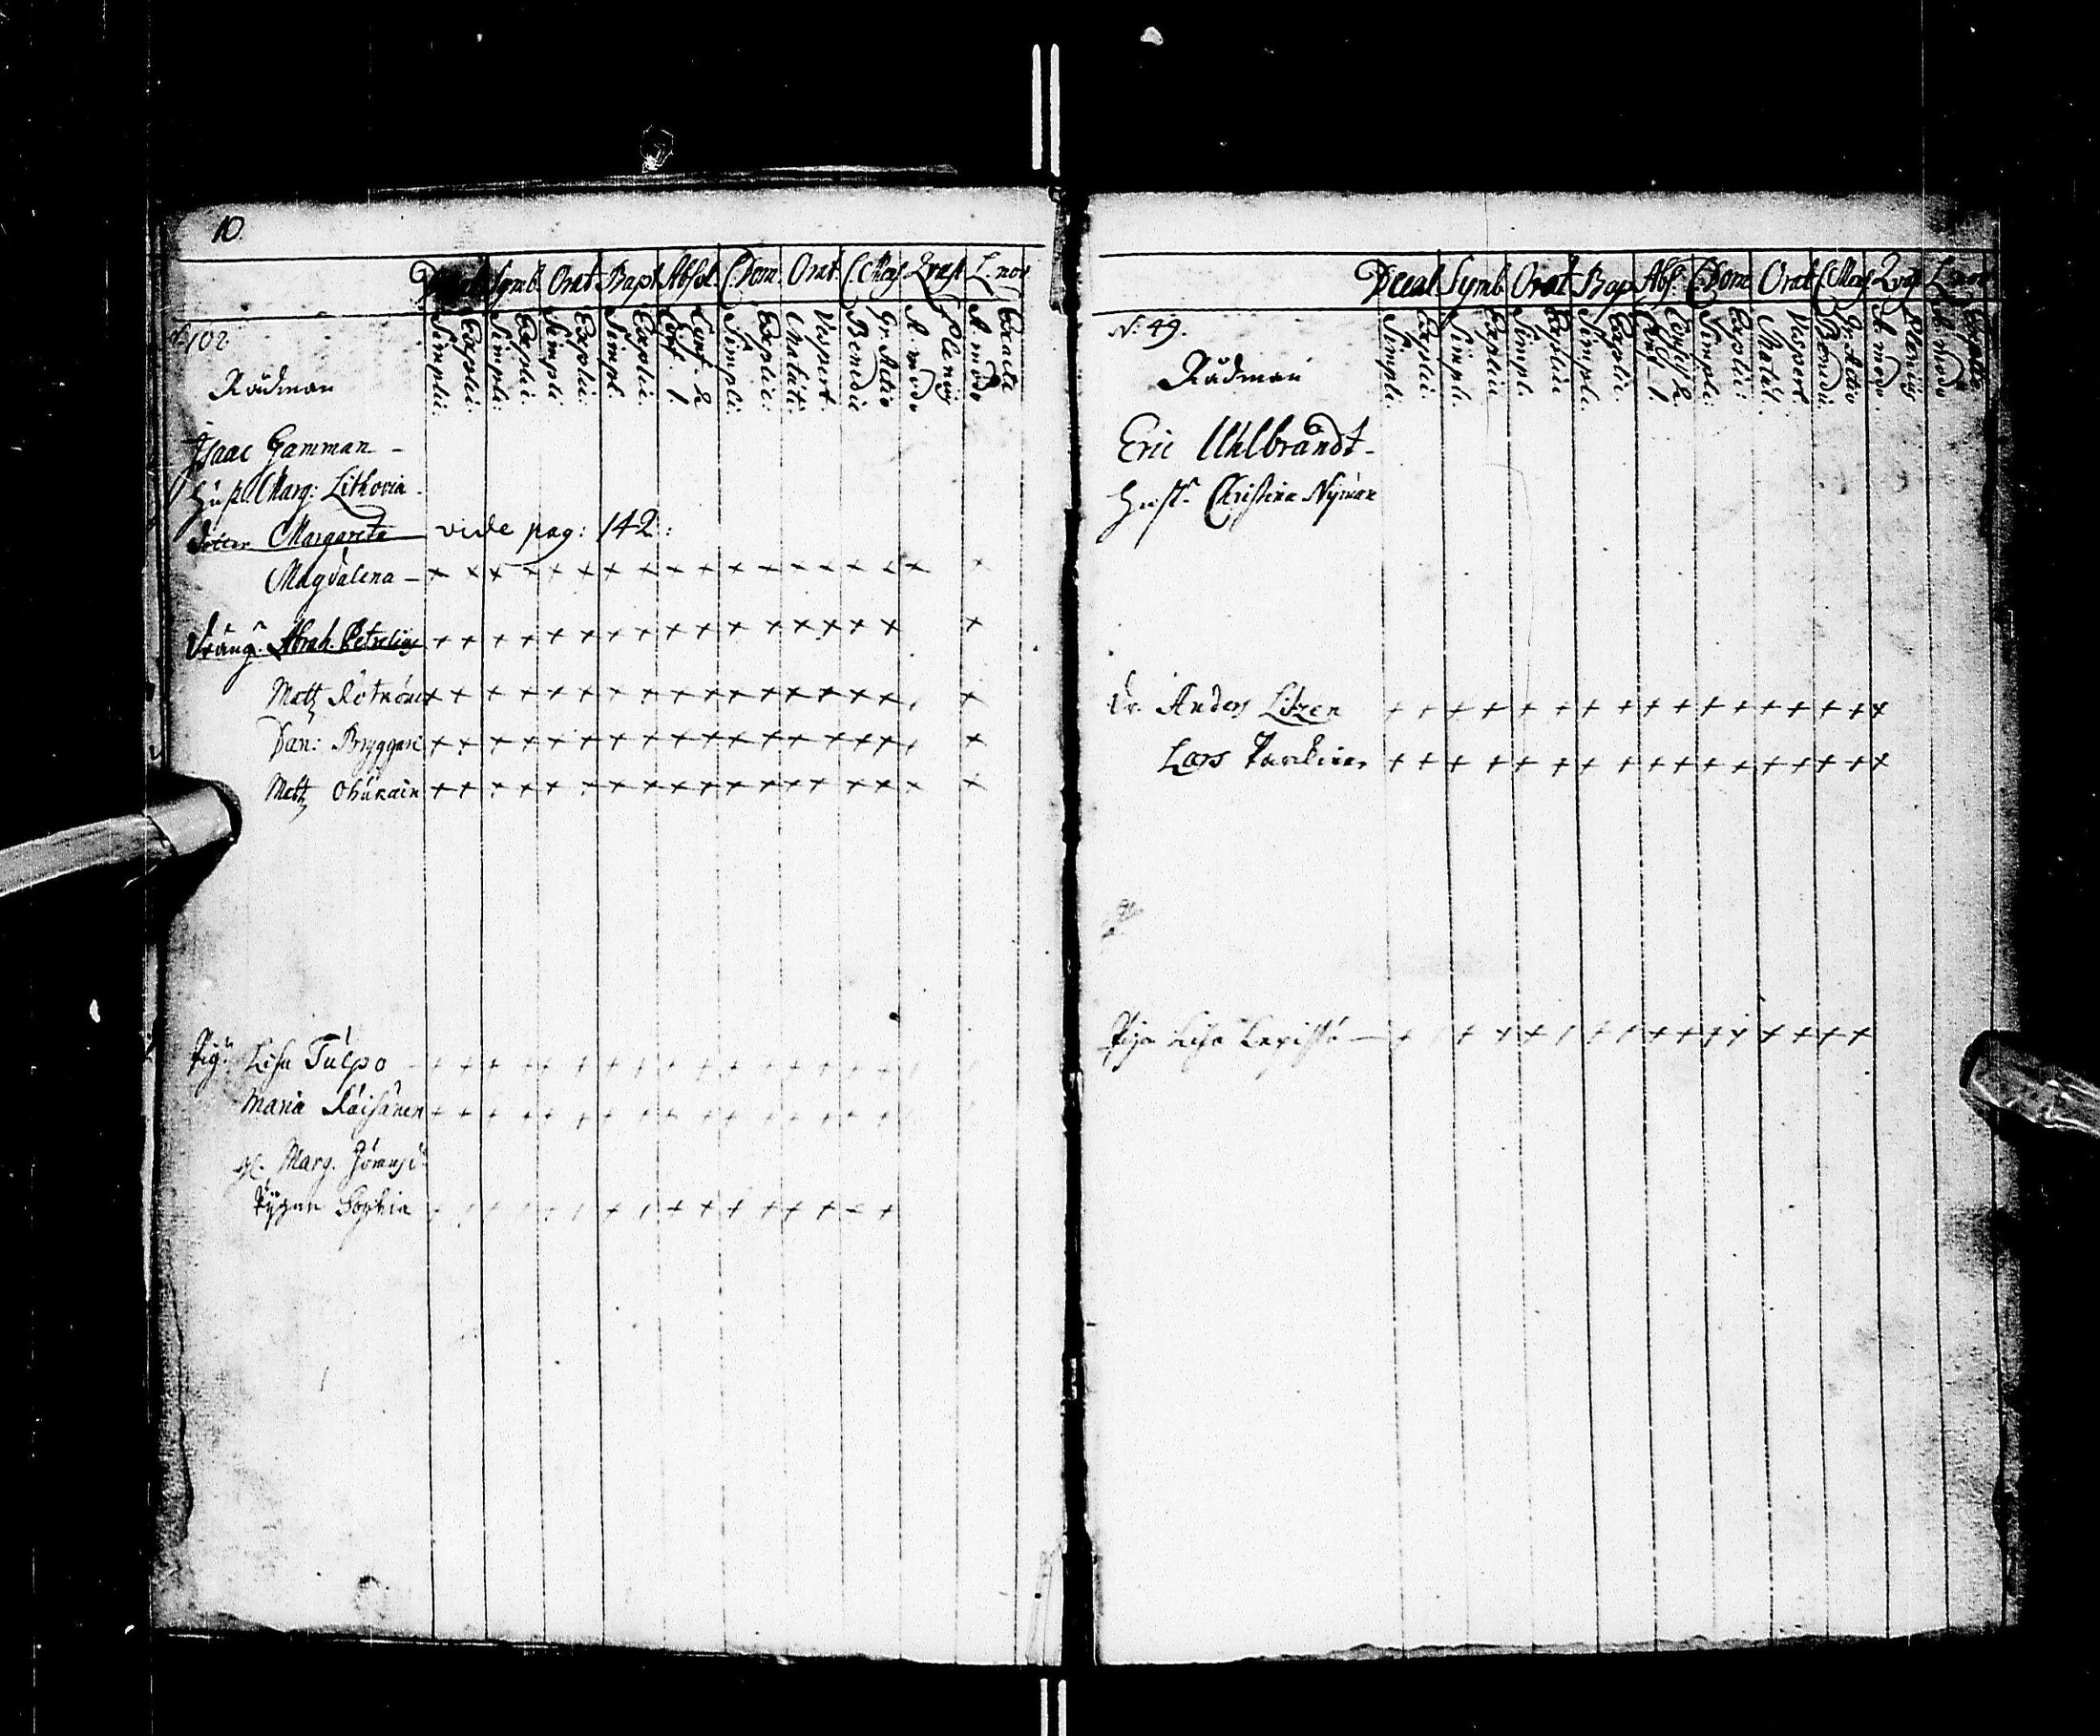 10.
Symb. Orat Bapt Absol. C. Dom. Orat. C. Mens Quæst L. nov
102
Simpli: Explic: Simpli: Explic: Simpli: Explic: Simpl. Explic. Conf. 1 Conf. 2 Simpli. Explic: Matuti. Vespert. Benedic Gr. Actio A. modo Plenius A. modo Exacte
Rådman
Isaac Gamman -
Hust. Marg: Lithovia -
dotter Margareta vide pag: 142:
Magdalena - + + + + + + + + + + + + + + + + + +
Dräng. Abrah. Petrelius + + + + + + + + + + + + + + + + +
Matts + + + + + + + + + + + + + + + + +
Dan: Bryggari + + + + + + + + + + + + + + + + +
Matts Ohukain + + + + + + + + + + + + + + + + + +
Pig. Lisa Tulpo + + + + + + + + + + + + + + + +
Maria Räisänen + + + + + + + + + + + + + + + +
Marg. Göransd.
Pygan Sophia + + + + + + + + + + + + + + + +
Decal Symb. Orat Bap Abs. C. Dom Orat C. Mens Quæst L. nov
N: 49.
Simpli: Explic: Simpl. Explic Simpl. Explic Simpli. Explic. Conf. 1 Conf. 2. Simpli: Explic: Matut. Vespert. Benedic. Gr. Actio A. modo. Plenius A. modo
Rådman
Eric Uhlbrandt -
Hust. Christina Nyman
Dr. Anders Litzen + + + + + + + + + + + + + + + + +
Lars + + + + + + + + + + + + + + + + +
Piga Lisa + / + + + / + / + + + + + + + +